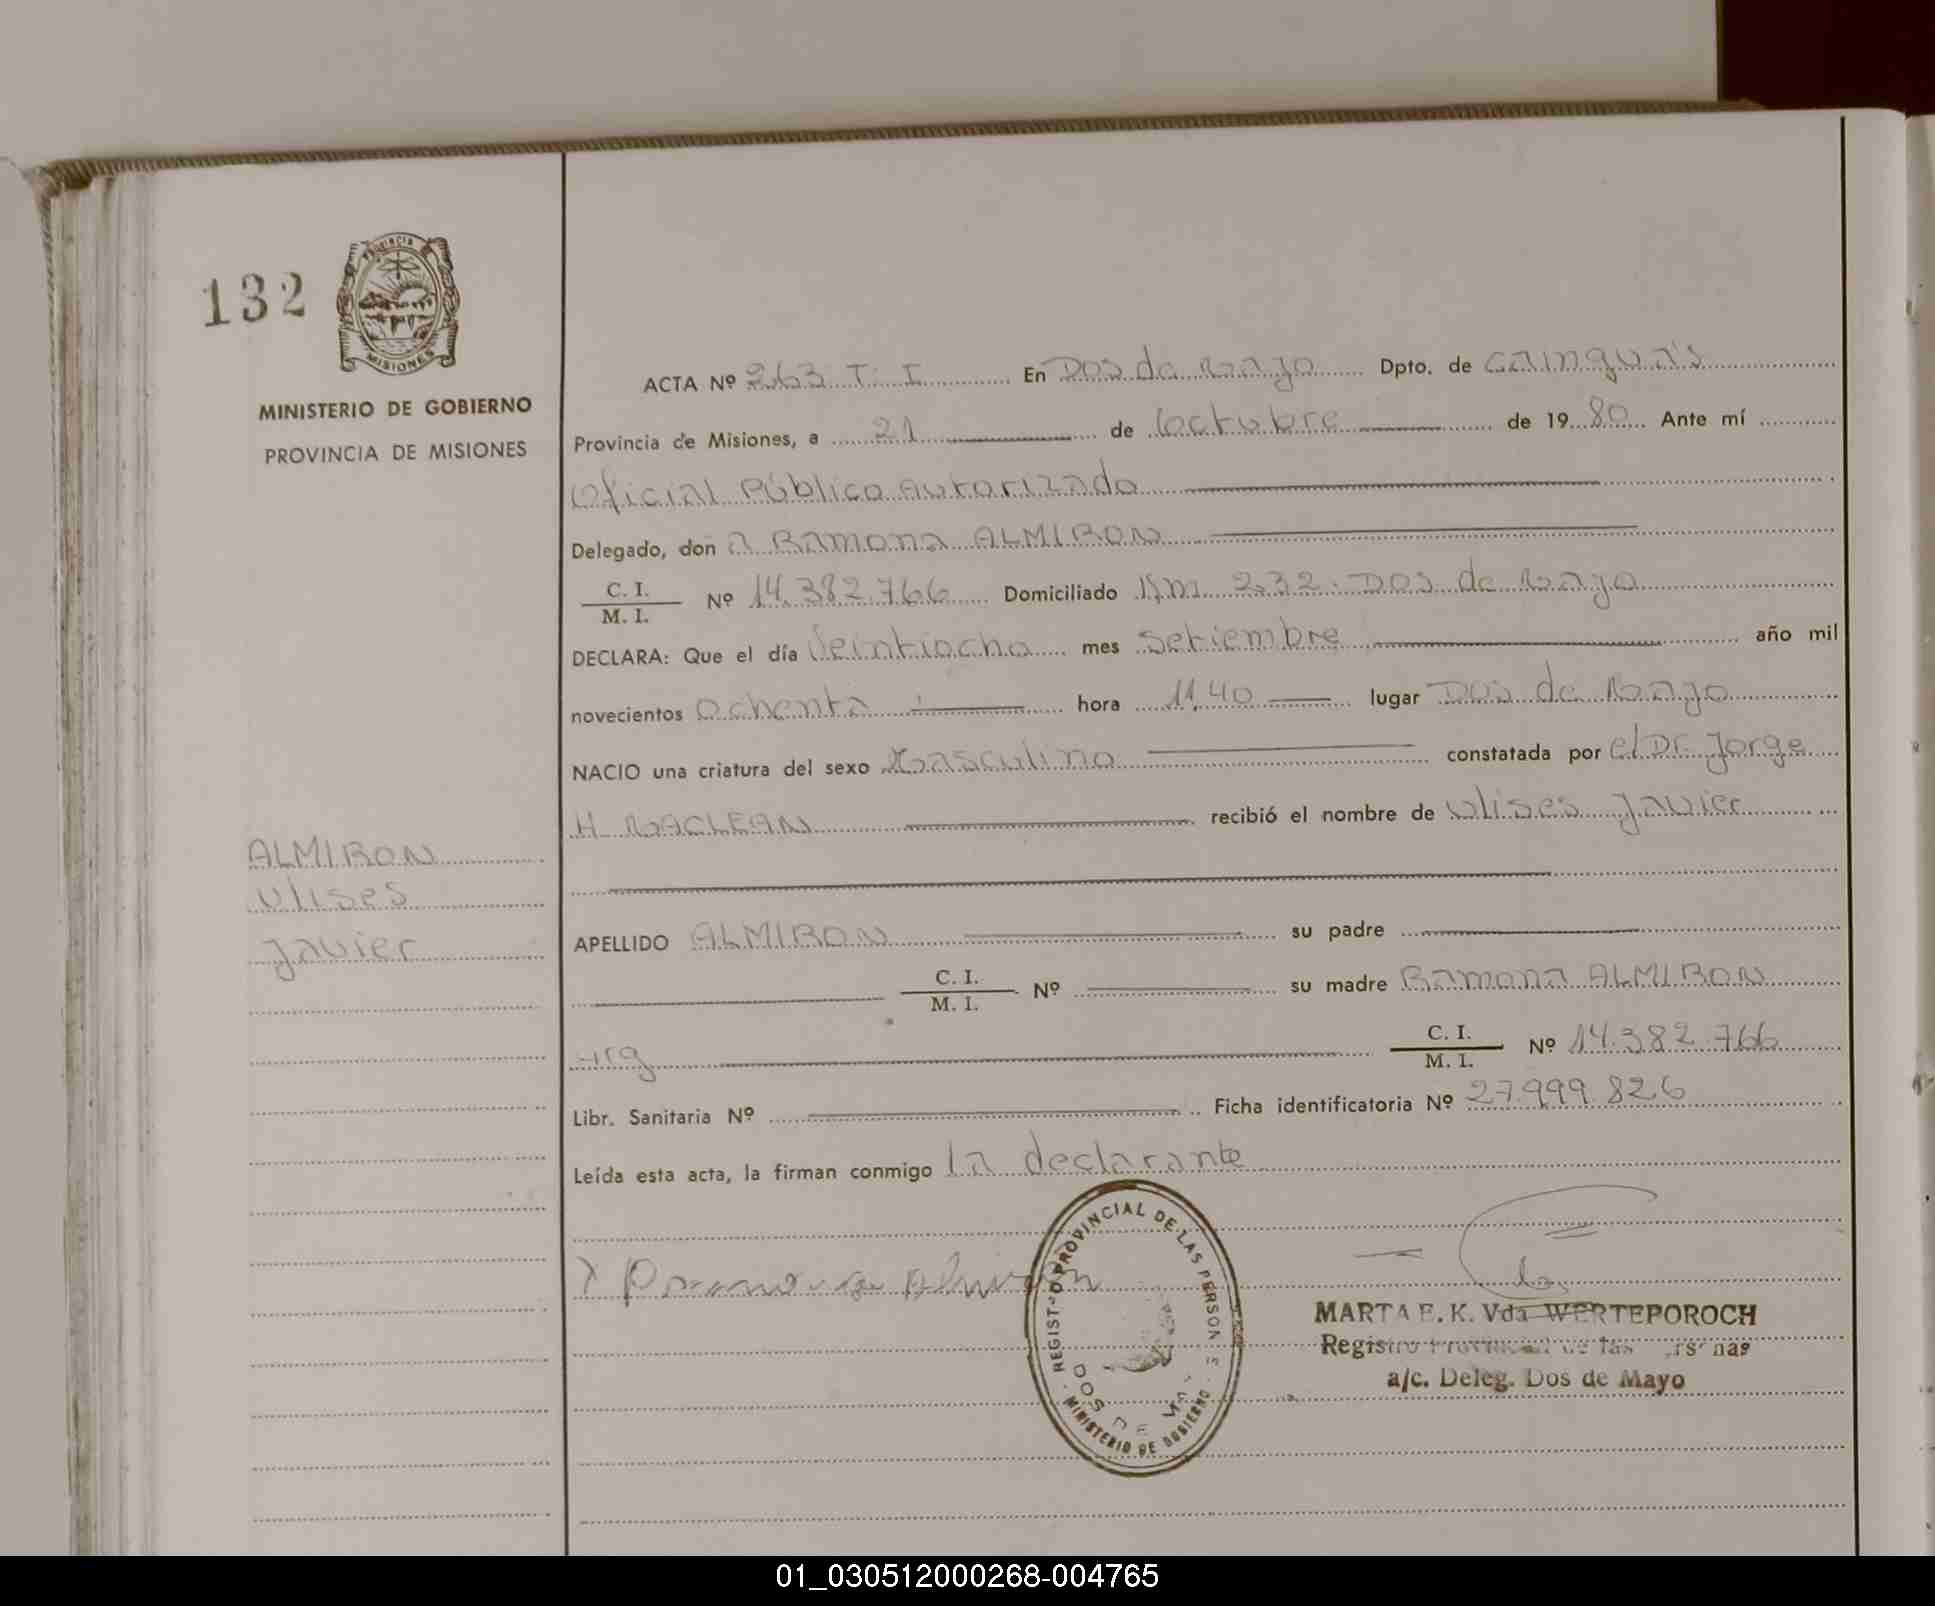 132
PROVINCIA
MISIONES
MINISTERIO DE GOBIERNO
PROVINCIA DE MISIONES
ACTA Nº 263 T: I En Dos de Mayo Dpto. de Cainguá's
Provincia de Misiones, a 21 de Octubre de 1980 Ante mí
Oficial Público Autorizado
Delegado, don a Ramona ALMIRON
C. I.
M. I. Nº 14.382.766 Domiciliado Km. 232. Dos de Mayo
DECLARA: Que el día Veintiocho mes Setiembre año mil
novecientos Ochenta hora 11,40 lugar Dos de Mayo
NACIO una criatura del sexo Masculino constatada por el Dr. Jorge
H. MACLEAN recibió el nombre de Ulises Javier
ALMIRON
Ulises
Javier
APELLIDO ALMIRON su padre
C. I.
M. I. Nº su madre Ramona ALMIRON
-arg C. I.
M. I. Nº 14.382.766
Libr. Sanitaria Nº Ficha identificatoria Nº 27.999.826
Leída esta acta, la firman conmigo la declarante
Ramona Almiron
REGISTRO PROVINCIAL DE LAS PERSONAS
DOS DE MAYO
MINISTERIO DE GOBIERNO
MARTA E. K. Vda WERTEPOROCH
Registro Provincial de las Personas
a/c. Deleg. Dos de Mayo
01_030512000268-004765